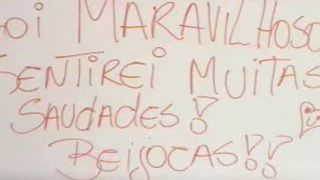 FOI MARAVILHOSO
SENTIREI MUITAS
SAUDADES!
BEIJOCAS!!